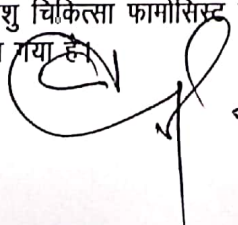 शु चिकित्सा फार्मासिस्ट
गया है।